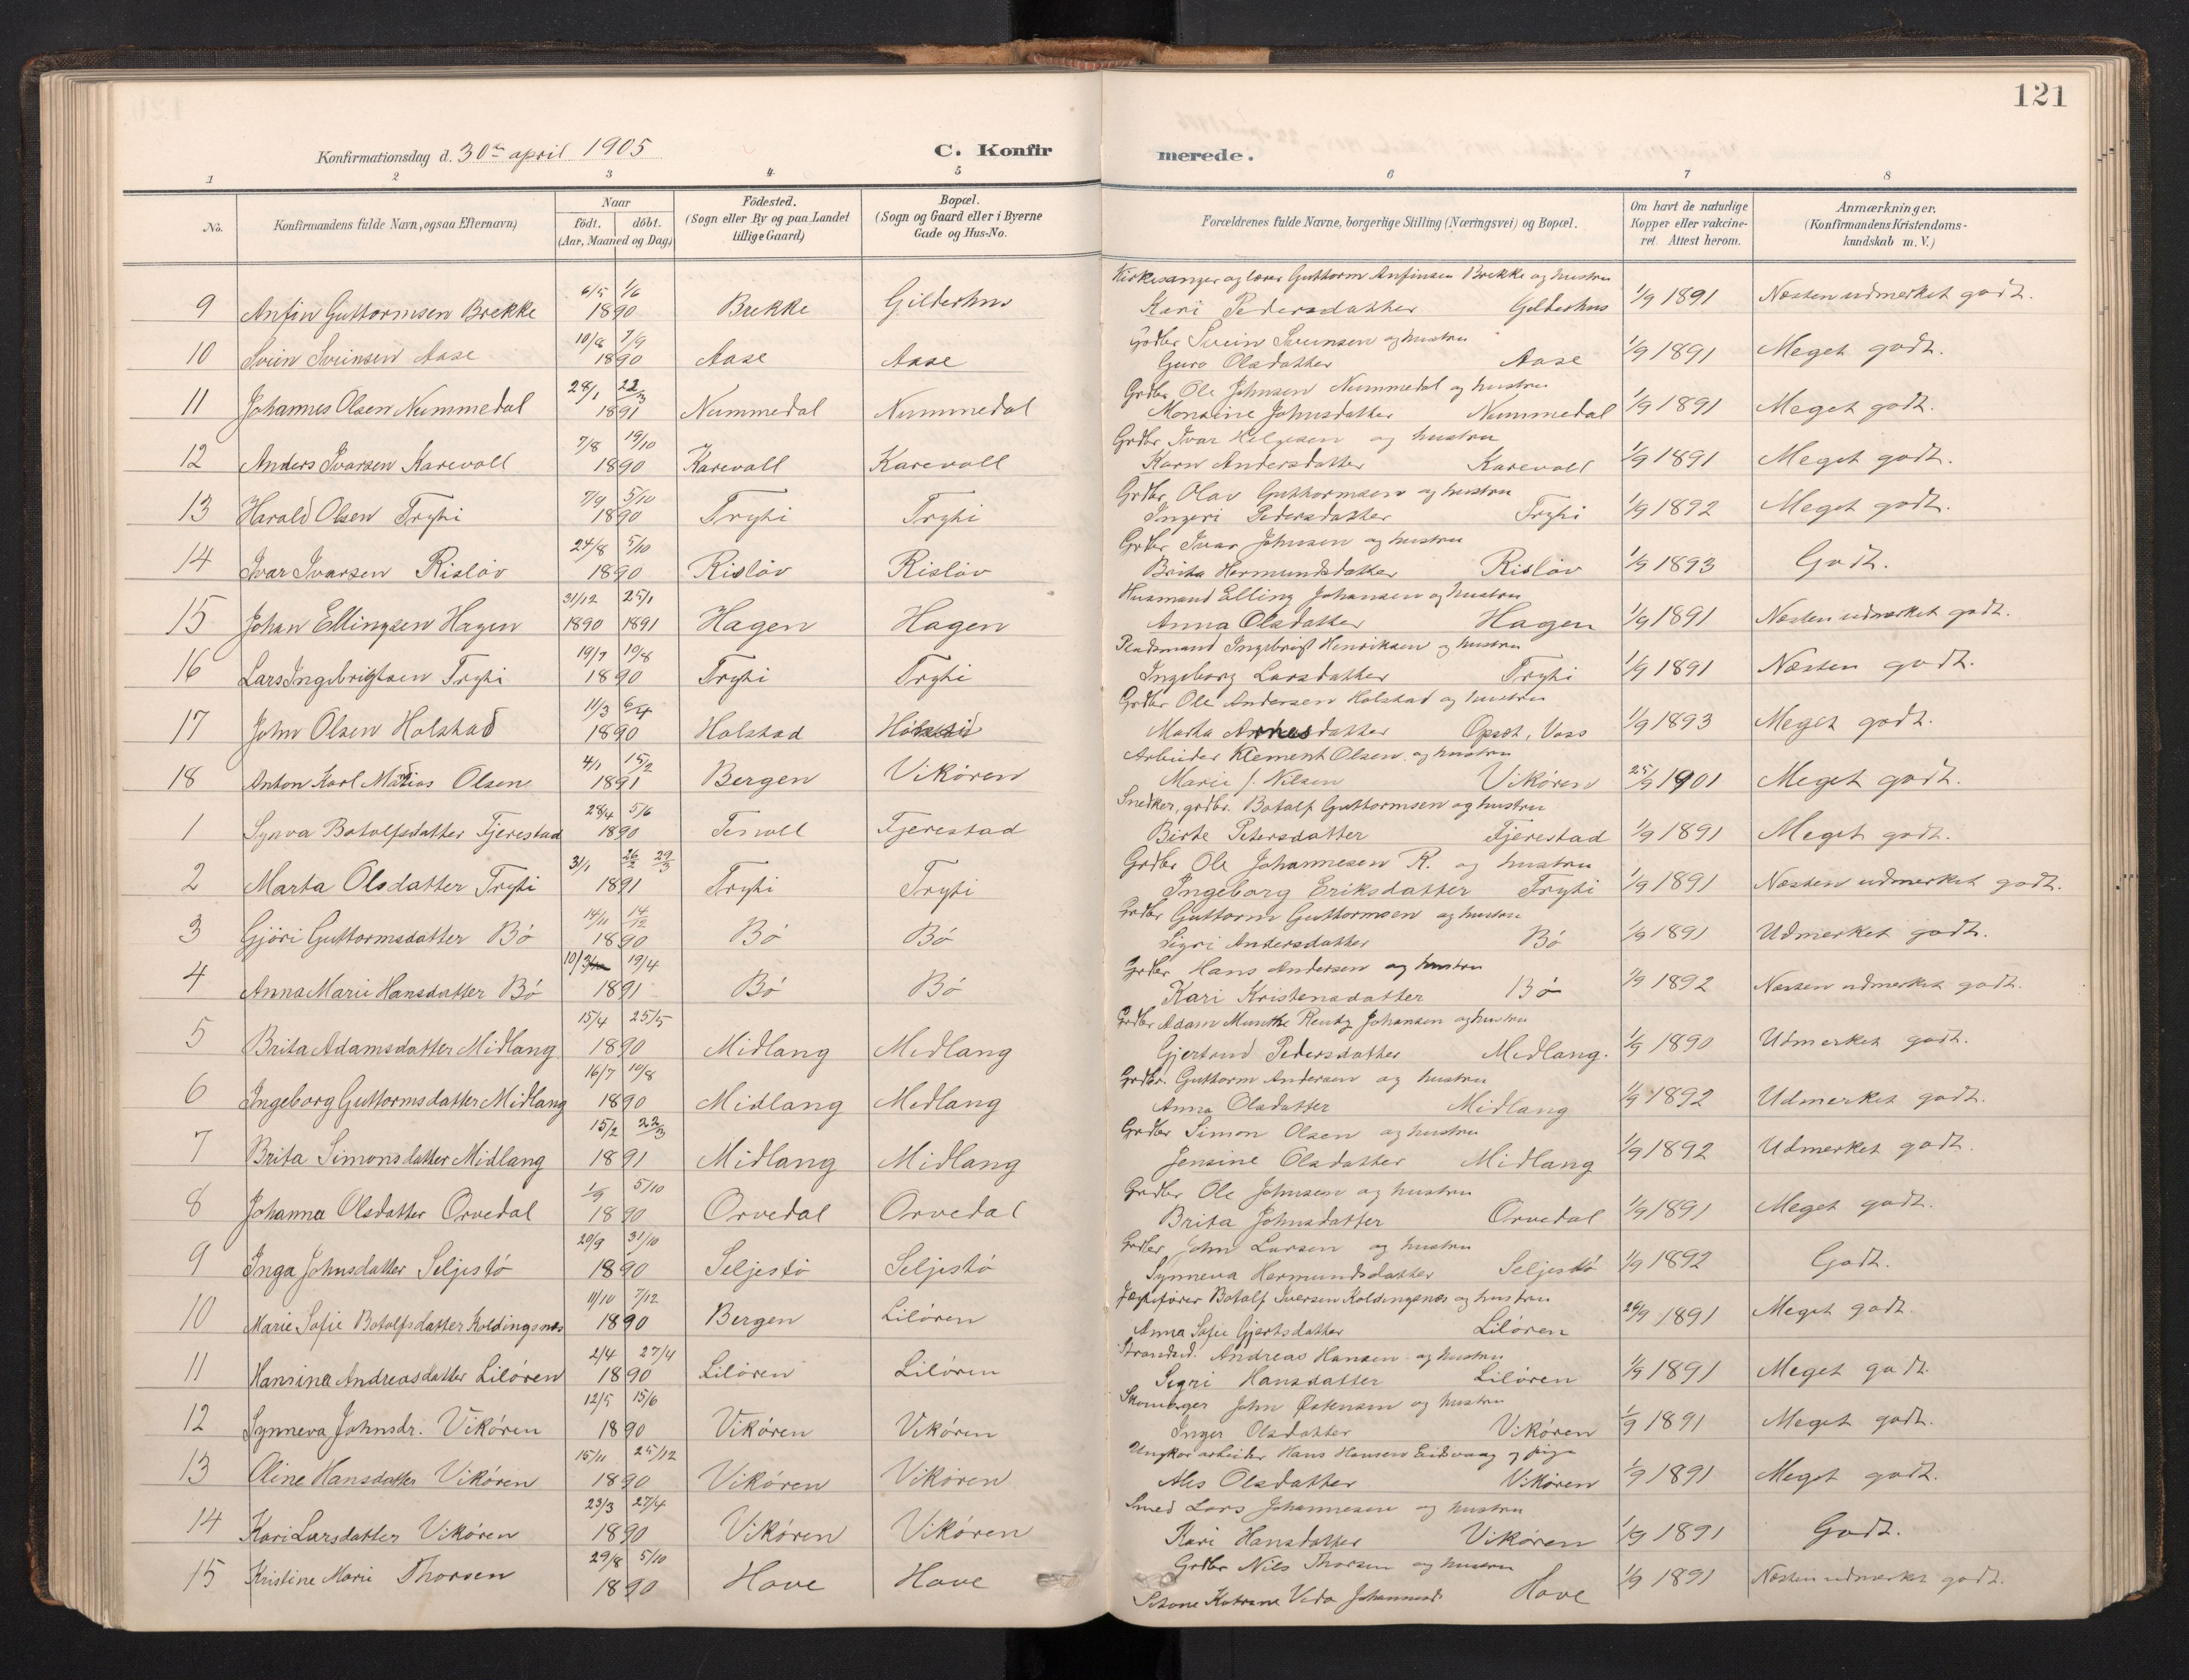 121
Konfirmationsdag d. 30te april 1905
C. Konfirmerede.
1 2 3 4 5 6 7 8
No.
Konfirmandens fulde Navn, ogsaa Efternavn)
Naar
födt. döbt.
(Aar, Maaned og Dag)
Födested.
(Sogn eller By og paa Landet
tillige Gaard)
Bopæl.
(Sogn og Gaard eller i Byerne
Gade og Hus-No.
Forældrenes fulde Navne, borgerlige Stilling (Næringsvei) og Bopæl.
Om havt de naturlige
Kopper eller vakcine-
ret. Attest herom.
Anmærkninger.
(Konfirmandens Kristendoms-
kundskab m. V.)
6/5 1/6 Kirkesanger og lærer Guttorm Anfinsen Brekke og hustru
9 Anfin Guttormsen Brekke 1890 Brekke Gilderhus Kari Pedersdatter Gilderhus 1/9 1891 Næsten udmerket godt.
10/8 7/9 Grdbr Svein Sveinsen og hustru
10 Svein Sveinsen Aase 1890 Aase Aase Guro Olsdatter Aase 1/9 1891 Meget godt.
28/1 22/3 Grdbr Ole Johnsen Nummedal og hustru
11 Johannes Olsen Nummedal 1891 Nummedal Nummedal Monsine Johnsdatter Nummedal 1/9 1891 Meget godt.
7/8 19/10 Grdbr Ivar Helgesen og hustru
12 Anders Ivarsen Karevoll 1890 Karevoll Karevoll Karn Andersdatter Karevoll 1/9 1891 Meget godt.
7/9 5/10 Grdbr Olav Guttormsen og hustru
13 Harald Olsen Tryti 1890 Tryti Tryti Ingeri Pedersdatter Tryti 1/9 1892 Meget godt.
24/8 5/10 Grdbr Ivar Johnsen og hustru
14 Ivar Ivarsen Rislöv 1890 Rislöv Rislöv Brita Hermundsdatter Rislöv 1/9 1893 Godt.
31/12 25/1 Husmand Elling Johansen og hustru
15 Johan Ellingsen Hagen 1890 1891 Hagen Hagen Anna Olsdatter Hagen 1/9 1891 Næsten udmerket godt.
19/7 10/8 Pladsmand Ingebrigt Henriksen og hustru
16 Lars Ingebrigtsen Tryti 1890 Tryti Tryti Ingeborg Larsdatter Tryti 1/9 1891 Næsten godt.
11/3 6/4 Grdbr Ole Andersen Holstad og hustru
17 John Olsen Holstad 1890 Holstad Marta Arnesdatter Opset, Voss 1/9 1893 Meget godt.
4/1 15/2 Arbeider Klement Olsen og hustru
18 Anton Karl Matias Olsen 1891 Bergen Vikören Marie f. Nilsen Vikören 25/9 1901 Meget godt.
28/4 5/6 Snedker, grdbr. Botolf Guttormsen og hustru
1 Synva Botolfsdatter Tjerestad 1890 Tjerestad Birte Petersdatter Tjerestad 1/9 1891 Meget godt.
31/1 26/2 29/3 Grdbr Ole Johannesen R. og hustru
2 Marta Olsdatter Tryti 1891 Tryti Tryti Ingeborg Eriksdatter Tryti 1/9 1891 Næsten udmerket godt.
14/11 14/12 Grdbr Guttorm Guttormsen og hustru
3 Gjöri Guttormsdatter Bö 1890 Bö Bö Sigri Andersdatter Bö 1/9 1891 Udmerket godt.
10/3 19/4 Grdbr Hans Andersen og hustru
4 Anna Marie Hansdatter Bö 1891 Bö Bö Kari Kristensdatter Bö 1/9 1892 Næsten udmerket godt.
15/4 25/5 Grdbr Adam Munthe Rentz Johansen og hustru
5 Brita Adamsdatter Midlang 1890 Midlang Midlang Gjertrud Pedersdatter Midlang. 1/9 1890 Udmerket godt.
16/7 10/8 Grdbr. Guttorm Andersen og hustru
6 Ingeborg Guttormsdatter Midlang 1890 Midlang Midlang Anna Olsdatter Midlang 1/9 1892 Udmerket godt.
15/2 22/3 Grdbr Simon Olsen og hustru
7 Brita Simonsdatter Midlang 1891 Midlang Midlang Jensine Olsdatter Midlang 1/9 1892 Udmerket godt.
1/9 5/10 Grdbr Ole Johnsen og hustru
8 Johanna Olsdatter Orvedal 1890 Orvedal Orvedal Brita Johnsdatter Orvedal 1/9 1891 Meget godt.
20/9 31/10 Grdbr John Larsen og hustru
9 Inga Johnsdatter Seljestö 1890 Seljestö Seljestö Synneva Hermundsdatter Seljestö 1/9 1892 Godt.
11/10 7/12 Jægtfører Botolf Iversen Koldingsnes og hustru
10 Marie Sofie Botolfsdatter Koldingsnes 1890 Bergen Lilören Anna Sofie Gjertsdatter Lilören 26/9 1891 Meget godt.
2/4 27/4 Strandsid. Andreas Hansen og hustru
11 Hansina Andreasdatter Lilören 1890 Lilören Lilören Sigri Hansdatter Lilören 1/9 1891 Meget godt.
12/5 15/6 Skomager John Östensen og hustru
12 Synneva Johnsdr. Vikören 1890 Vikören Vikören Inger Olsdatter Vikören 1/9 1891 Meget godt.
15/11 25/12 Ungkar arbeider Hans Hansen Eidsvaag og pige
13 Oline Hansdatter Vikören 1890 Vikören Vikören Ales Olsdatter Vikören 1/9 1891 Meget godt.
23/3 27/4 Smed Lars Johannesen og hustru
14 Kari Larsdatter Vikören 1890 Vikören Vikören Kari Hansdatter Vikören 1/9 1891 Godt.
29/8 5/10 Grdbr Nils Thorsen og hustru
15 Kristine Marie Thorsen 1890 Hove Hove Katrine Johannesd. Hove 1/9 1891 Næsten udmerket godt.